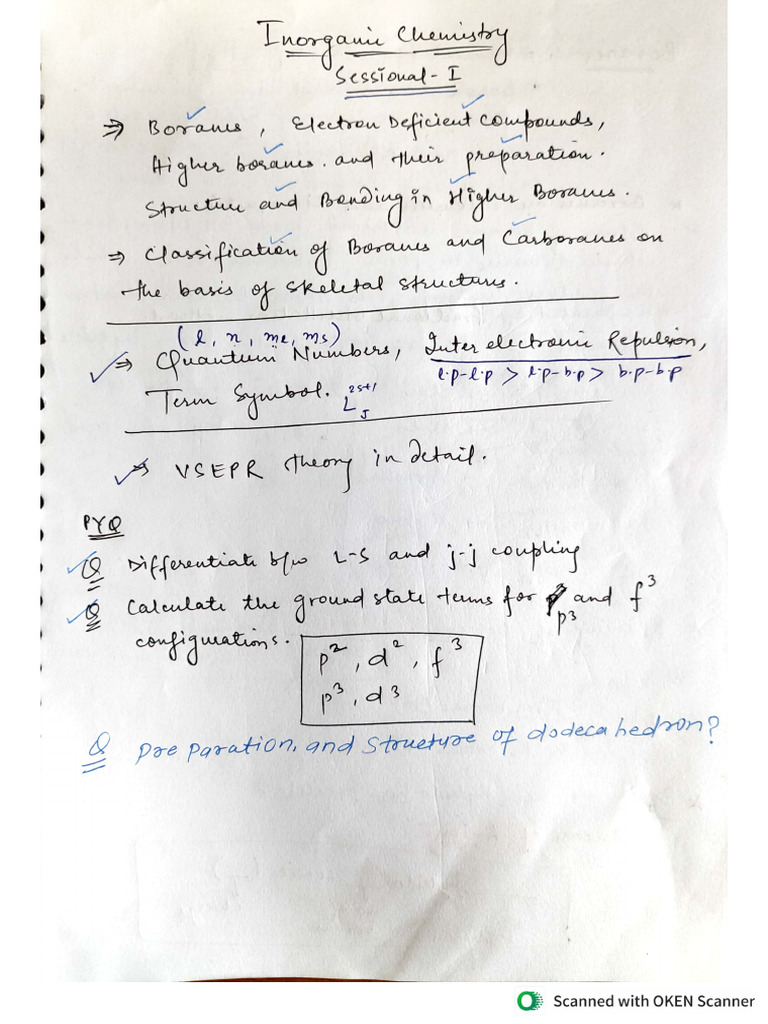 Inorganic Chemistry
Sessional - I
⇒ Boranes, Electron Deficient compounds,
Higher boranes. and their preparation.
Structure and Bonding in Higher Boranes.
⇒ Classification of Boranes and Carboranes on
the basis of skeletal structures.
(l, n, me, ms)
⇒ Quantum Numbers, Inter electronic Repulsion,
l.p-l.p > l.p-b.p > b.p-b.p
Term Symbol. ²ˢ⁺¹L_J
⇒ VSEPR theory in detail.
PYQ
Q Differentiate b/w L-S and j-j coupling
Q Calculate the ground state terms for p³ and f³
configurations.
p², d², f³
p³, d³
Q Preparation, and Structure of dodecahedron?
Scanned with OKEN Scanner